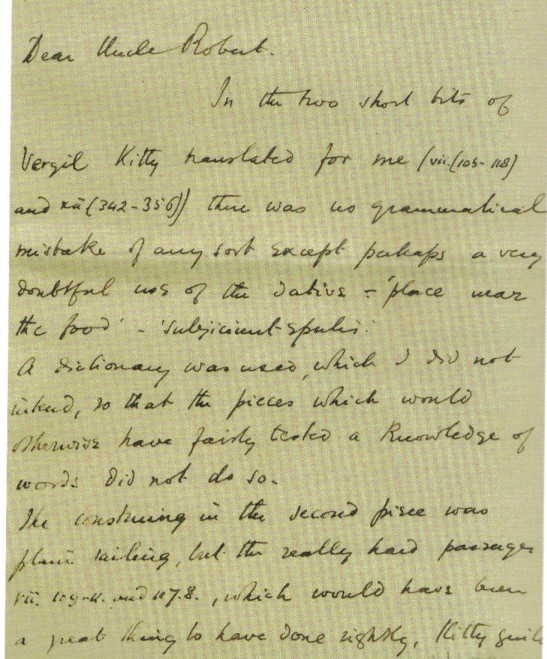 Dear Uncle Robert.
In the two short bits of
Vergil Kitty translated for me (vii.(105-118)
and xii(342-356)) there was no grammatical
mistake of any sort except perhaps a very
doubtful use of the dative - 'place near
the food' - 'subjiciunt epulis'.
A dictionary was used, which I did not
intend, so that the pieces which would
otherwise have fairly tested a knowledge of
words did not do so.
The construing in the second piece was
plain sailing, but the really hard passages
vii. 109-11. and 117.8., which would have been
a great thing to have done rightly, Kitty quite